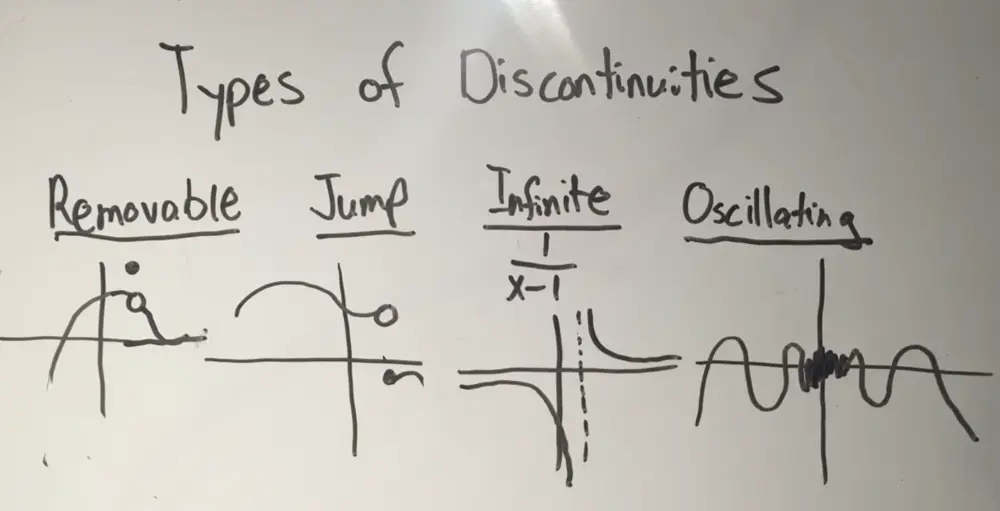 Types of Discontinuities
Removable Jump Infinite Oscillating
1
x-1